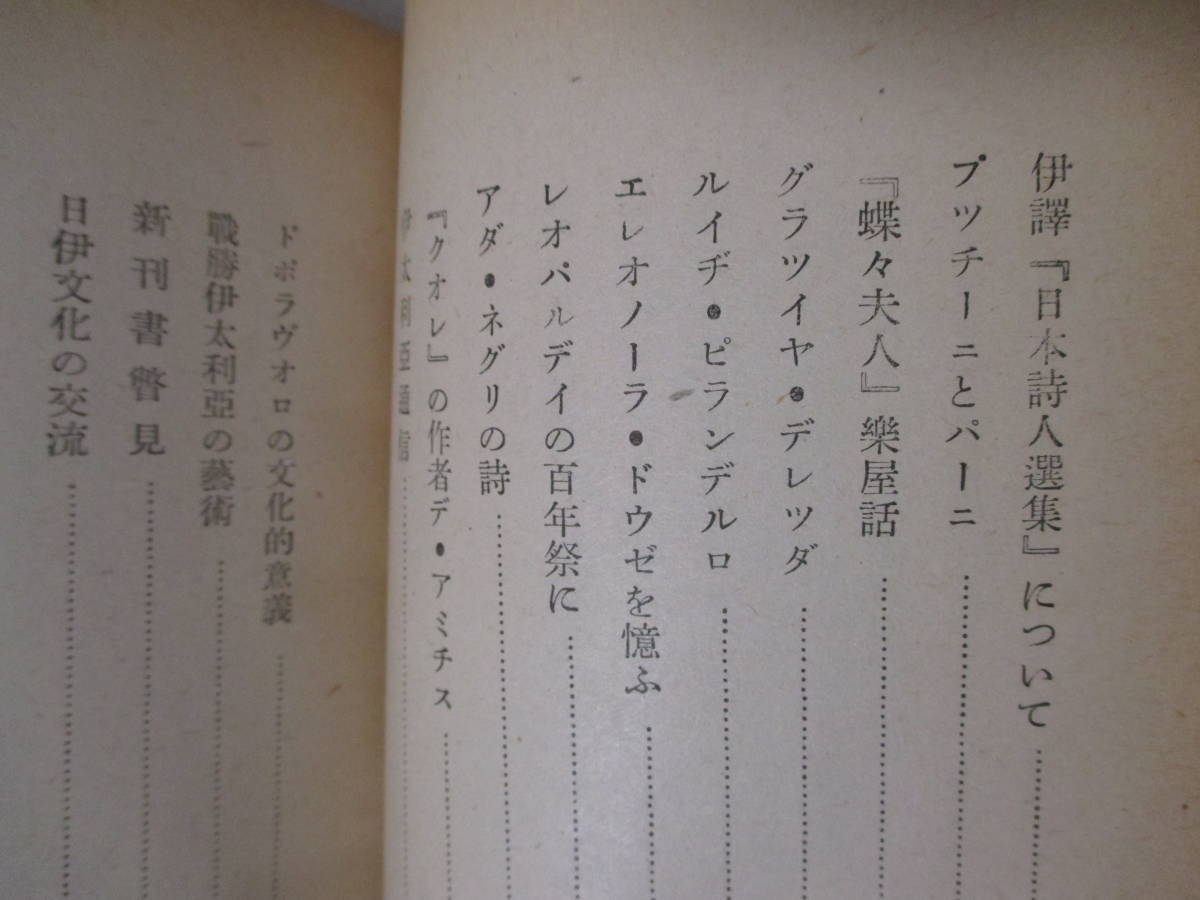 伊譯『日本詩人選集』について
プツチーニとパーニ
『蝶々夫人』樂屋話
グラツイヤ・デレツダ
ルイヂ・ピランデルロ
エレオノーラ・ドウゼを憶ふ
レオパルデイの百年祭に
アダ・ネグリの詩
『クオレ』の作者デ・アミチス
伊太利亞通信
ドポラヴオロの文化的意義
戰勝伊太利亞の藝術
新刊書瞥見
日伊文化の交流